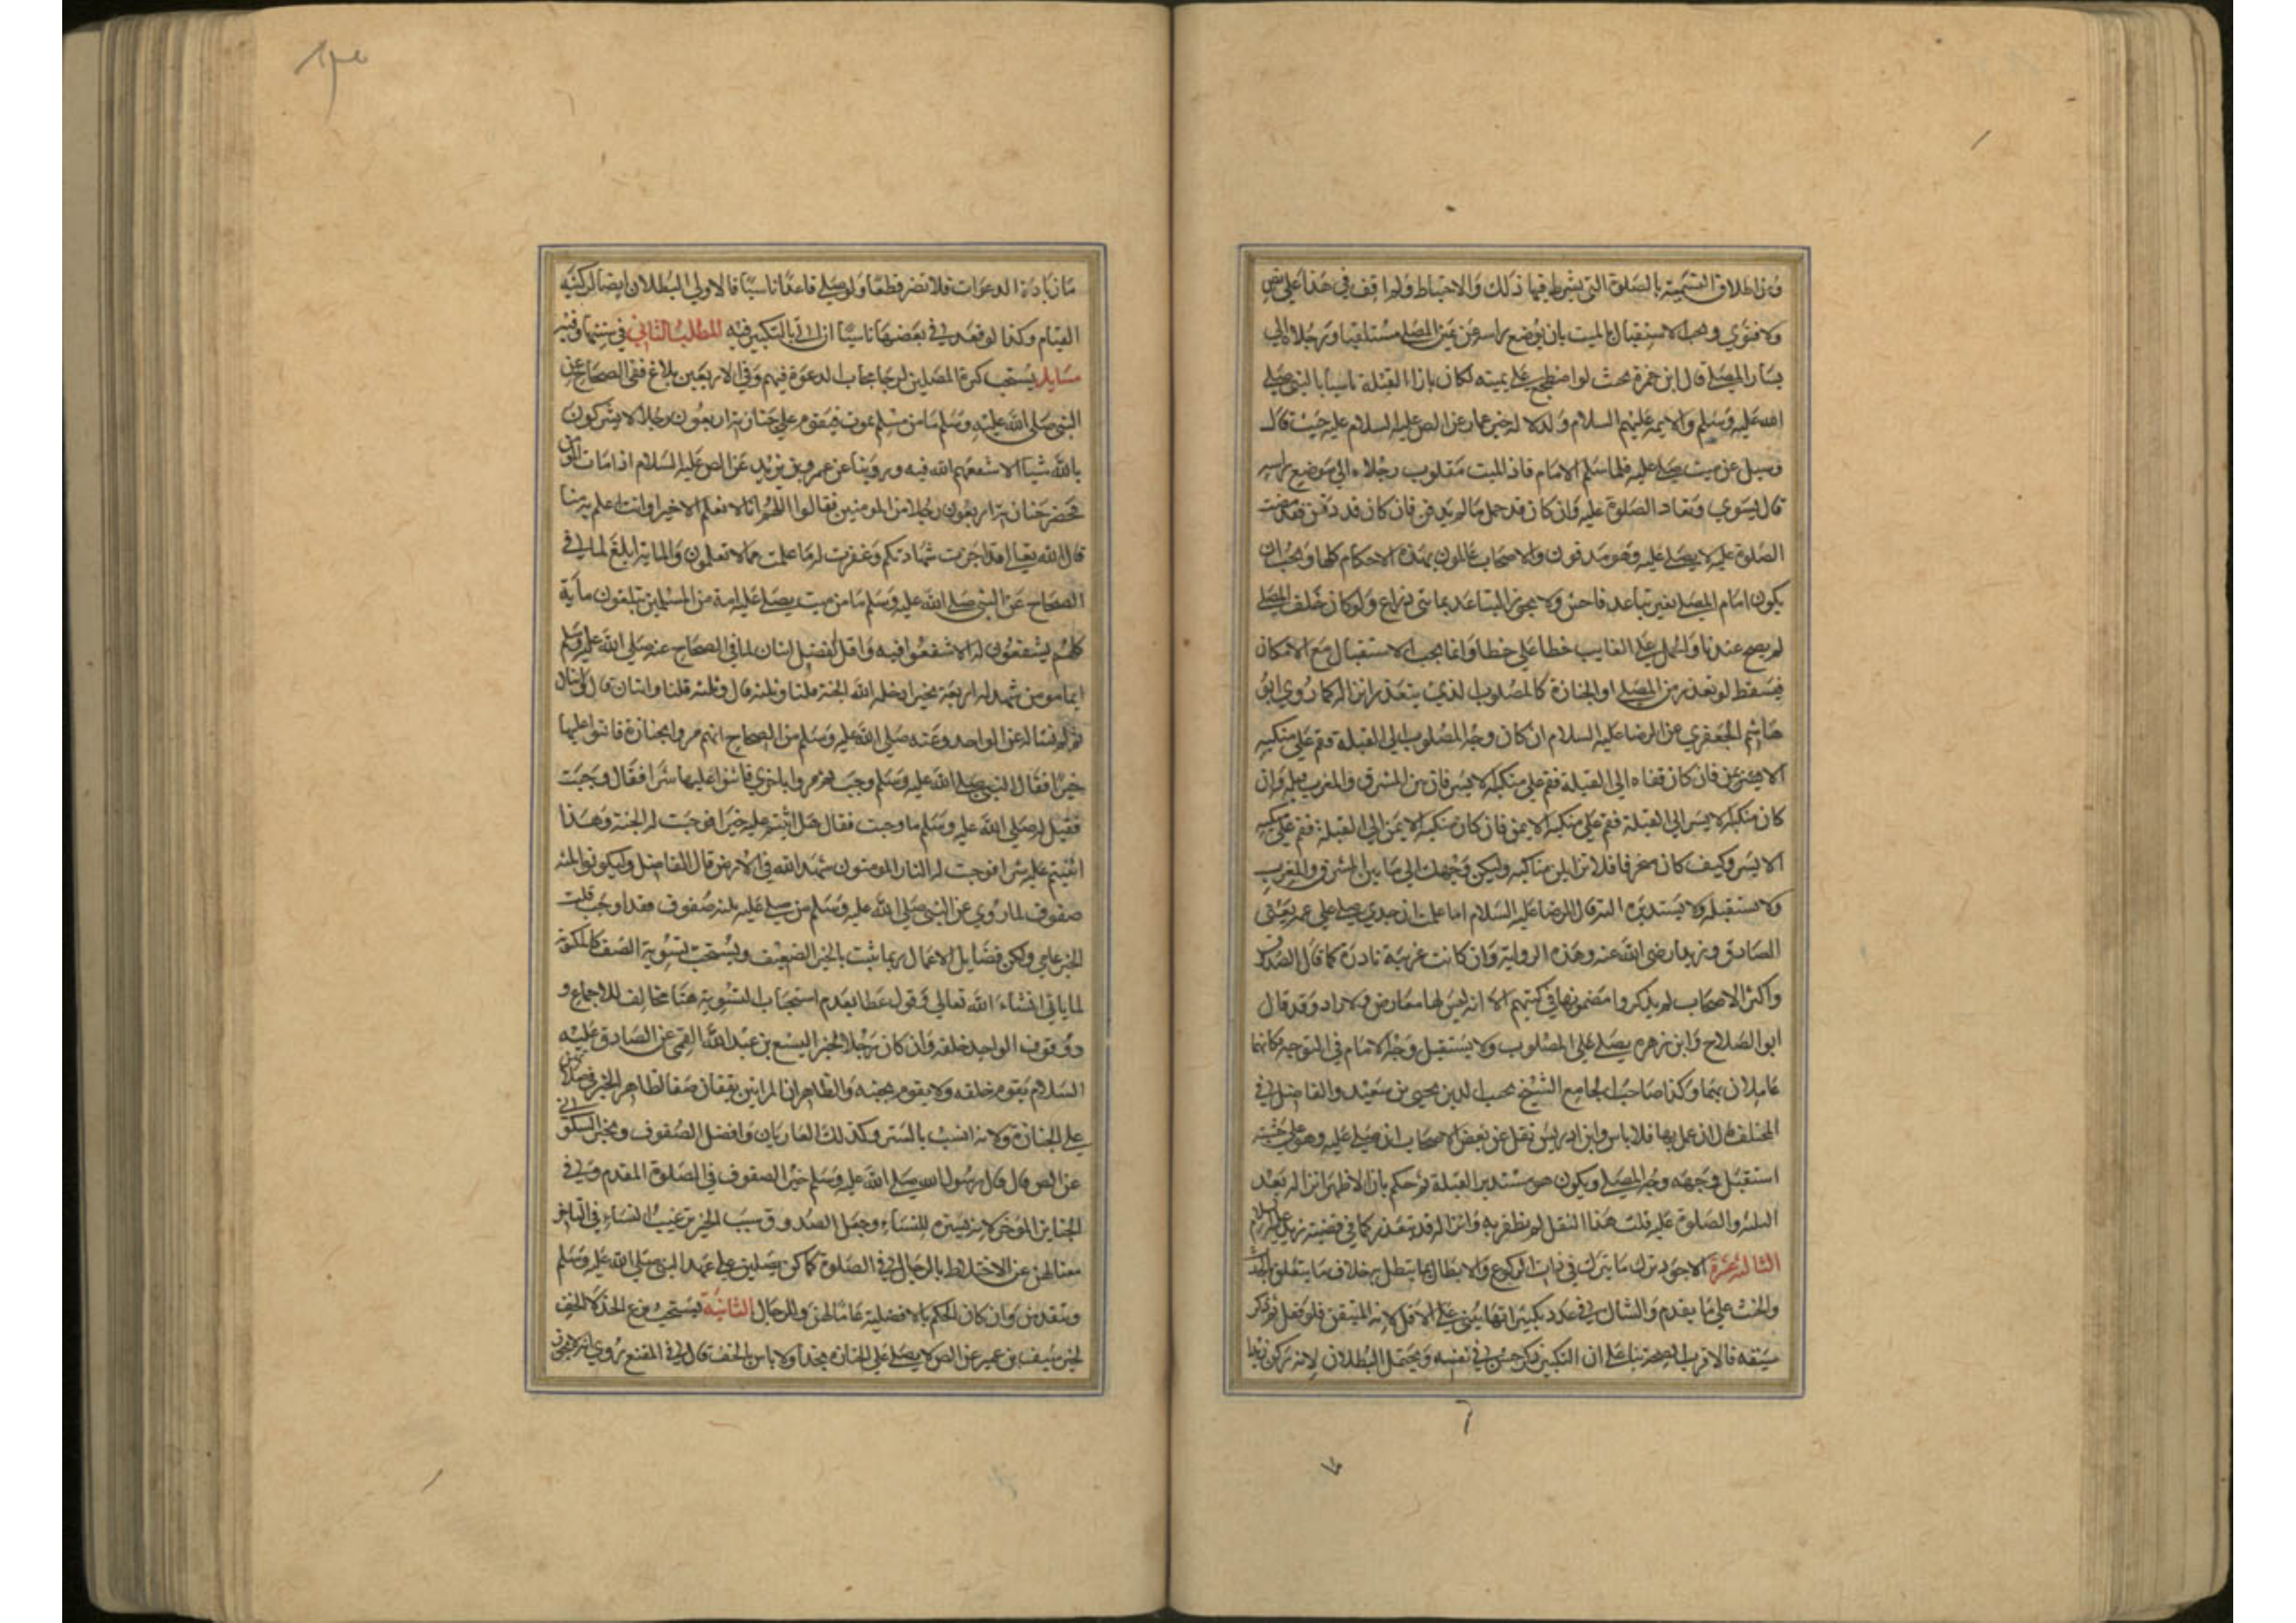 ومن اطلاق التسمية بالصلوة التي يشترط فيها ذلك والاحتياط ولم اقف في هذا على نص
ولا فتوي ويجب الاستقبال بالميت بان يوضع راسه عن يمين المصلي مستلقيا ورجلاه الي
يسار المصلي قال ابن حمزة بحيث لو اضطجع على يمينه لكان بازاء القبلة تاسيا بالنبي صلي
الله عليه وسلم والايمة عليهم السلام ولدلالة خبر عمار عن الص عليه السلام عليه حيث قال
وسيل عن ميت صلي عليه فلما سلم الامام فاذا الميت مقلوب رجلاه الي موضع راسه
قال يسوي وتعاد الصلوة عليه وان كان قد حمل ما لم يدفن فان كان قد دفن فقد مضت
الصلوة عليه لا يصلي عليه وهو مدفون والاصحاب عاملون بهذه الاحكام كلها ويجب ان
يكون امام المصلي بغير تباعد فاحش ولا يجوز التباعد بماتي ذراع ولو كان خلف المصلي
لم يصح عندنا والحمل على الغايب خطا على خطا وانما يجب الاستقبال مع الامكان
فيسقط لو تعذر من المصلي او الجنازة كالمصلوب الذي يتعذر انزاله كما روي ابو
هاشم الجعفري عن الرضا عليه السلام ان كان وجه المصلوب الي القبلة فقم على منكبه
الايمن فان كان قفاه الي القبلة فقم علي منكبه الايسر فان بين المشرق والمغرب قبلة وان
كان منكبه الايسر الي القبلة فقم على منكبه الايمن فان كان منكبه الايمن الي القبلة فقم علي منكبه
الايسر وكيف كان منحرفا فلا تزايلن مناكبه وليكن وجهك الي ما بين المشرق والمغرب
ولا تستقبله ولا تستدبره البتة قال الرضا عليه السلام اما علمت ان جدي صلي علي عمه يعني
الصادق وزيدا رضي الله عنه وهذه الرواية وان كانت غريبة نادرة كما قال الصدوق
واكثر الاصحاب لم يذكروا مضمونها في كتبهم الا انه ليس لها معارض ولا راد وقد قال
ابو الصلاح وابن زهره يصلي على المصلوب ولا يستقبل وجه الامام في التوجه فكانهما
عاملان بها وكذا صاحب الجامع الشيخ نجيب الدين يحيي بن سعيد والفاضل في
المختلف قال ان عمل بها فلا باس وابن ادريس نقل عن بعض الاصحاب ان صلي عليه وهو على خشبته
استقبل وجهه وجه المصلي ويكون هو مستدبر القبلة ثم حكم بان الاظهر انزاله بعد
الثلثة والصلوة عليه قلت هذا النقل لم نظفر به وانزاله قد يتعذر كما في قضية زيد عليه السلام
الثالثة عشرة الاجود ترك ما يترك في ذات الركوع والابطال بما يبطل بخلاف ما يتعلق بالحدث
والخبث على ما يقدم والشاك في عدد تكبيراتها يبني على الاقل لانه المتيقن فلو فعل ثم ذكر
سبقه فالاقرب الصحة بناء على ان التكبير ذكر حسن في نفسه ويحتمل البطلان لانه ركن زيد
ما زيادة الدعوات فلا تضر قطعا ولو صلى قاعدا ناسيا فالاولي البطلان ايضا لركنية
القيام وكذا لو قعد في بعضها ناسيا ان اتى بالتكبير فيه المطلب الثاني في سننها وفيه
مسايل يستحب كثرة المصلين لرجا يجاب الدعوة فيهم وفي الاربعين بلاغ ففي الصحاح عن
النبي صلى الله عليه وسلم ما من مسلم يموت فيقوم على جنازته اربعون رجلا لا يشركون
بالله شيا الا شفعهم الله فيه وروينا عن عمر بن يزيد عن الص عليه السلام اذا مات المؤمن
فحضر جنازته اربعون رجلا من المومنين فقالوا اللهم انا لا نعلم الا خيرا وانت اعلم به منا
قال الله تعالى قد اجزت شهادتكم وغفرت له ما علمت مما لا تعلمون والماية ابلغ لما في
الصحاح عن النبي صلي الله عليه وسلم ما من ميت يصلي عليه امة من المسلمين تبلغون ماية
كلهم يشفعون له الا شفعوا فيه واقل الفضل اثنان لما في الصحاح عنه صلى الله عليه وسلم
ايما مومن شهد له اربعة بخير ادخله الله الجنة قلنا وثلثة قال وثلثة قلنا واثنان قال واثنان
ثم لم نساله عن الواحد وعنه صلى الله عليه وسلم من الصحاح انهم مروا بجنازة فاثنوا عليها
خيرا فقال النبي صلى الله عليه وسلم وجبت ثم مروا باخري فاثنوا عليها شرا فقال وجبت
فقيل له صلى الله عليه وسلم ما وجبت فقال هذا اثنيتم عليه خيرا فوجبت له الجنة وهذا
اثنيتم عليه شرا فوجبت له النار المومنون شهداء الله في الارض قال الفاضل وليكونوا ثلثة
صفوف لما روي عن النبي صلى الله عليه وسلم من صلي عليه ثلثة صفوف فقد اوجب قلت
الخبر عامي ولكن فضايل الاعمال ربما ثبت بالخبر الضعيف ويستحب تسوية الصف كالمكتوبة
لما ياتي انشاء الله تعالي وقول عطا بعدم استحباب التسوية هنا مخالف للاجماع و
وقوف الواحد خلفه وان كان رجلا لخبر اليسع بن عبد الله القمي عن الصادق عليه
السلام يقوم خلفه ولا يقوم بجنبه والظاهر ان المراتين يقفان صفا لظاهر الخبر في صلاتهن
علي الجنازة ولانه انسب بالستر وكذلك العاريان وافضل الصفوف وبخبر السكوني
عن الص قال قال رسول الله صلى الله عليه وسلم خير الصفوف في الصلوة المقدم وفي
الجنايز الموخر لانه سترة للنساء وجعل الصدوق سبب الخبر ترغيب النساء في التاخر
منعا لهن عن الاختلاط بالرجال في الصلوة كما كن يصلين على عهد النبي صلى الله عليه وسلم
ويتقدمن وان كان الحكم بالافضلية عاما لهن وللرجال الثانية يستحب نزع الحذاء لا الخف
لخبر سيف بن عميرة عن الص لا يصلى على الجنازة بحذاء ولا باس بالخف قال في المقنع روي انه لا يجوز